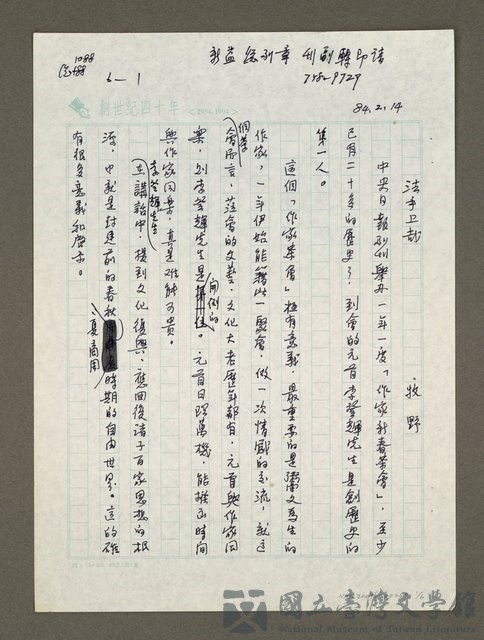 1088
6-1
7182-9729
84.2.14
創世紀四十年
牧野
中央日報副刊舉辦一年一度「作家新春茶會」,至少
已有二十多的歷史了,到會的元首李登輝先生是創歷史的
第一人。
這個「作家茶會」極有意義,最重要的是鬻文為生的
作家,一年伊始能藉此一聚會,做一次情感的交流,就這
個茶
會而言,蒞會的文藝、文化大老歷年都有,元首與作家同
樂,則李登輝先生是開例的。元首日理萬機,能撥出時間
與作家同樂,真是難能可貴。
李登輝先生
在講話中,提到文化復興,應回復諸子百家思想的根
源,也就是封建前的春秋時期的自由世界。這的確
夏商周
有很多意義和啟示。
國立臺灣文學館
National Museum of Taiwan Literature